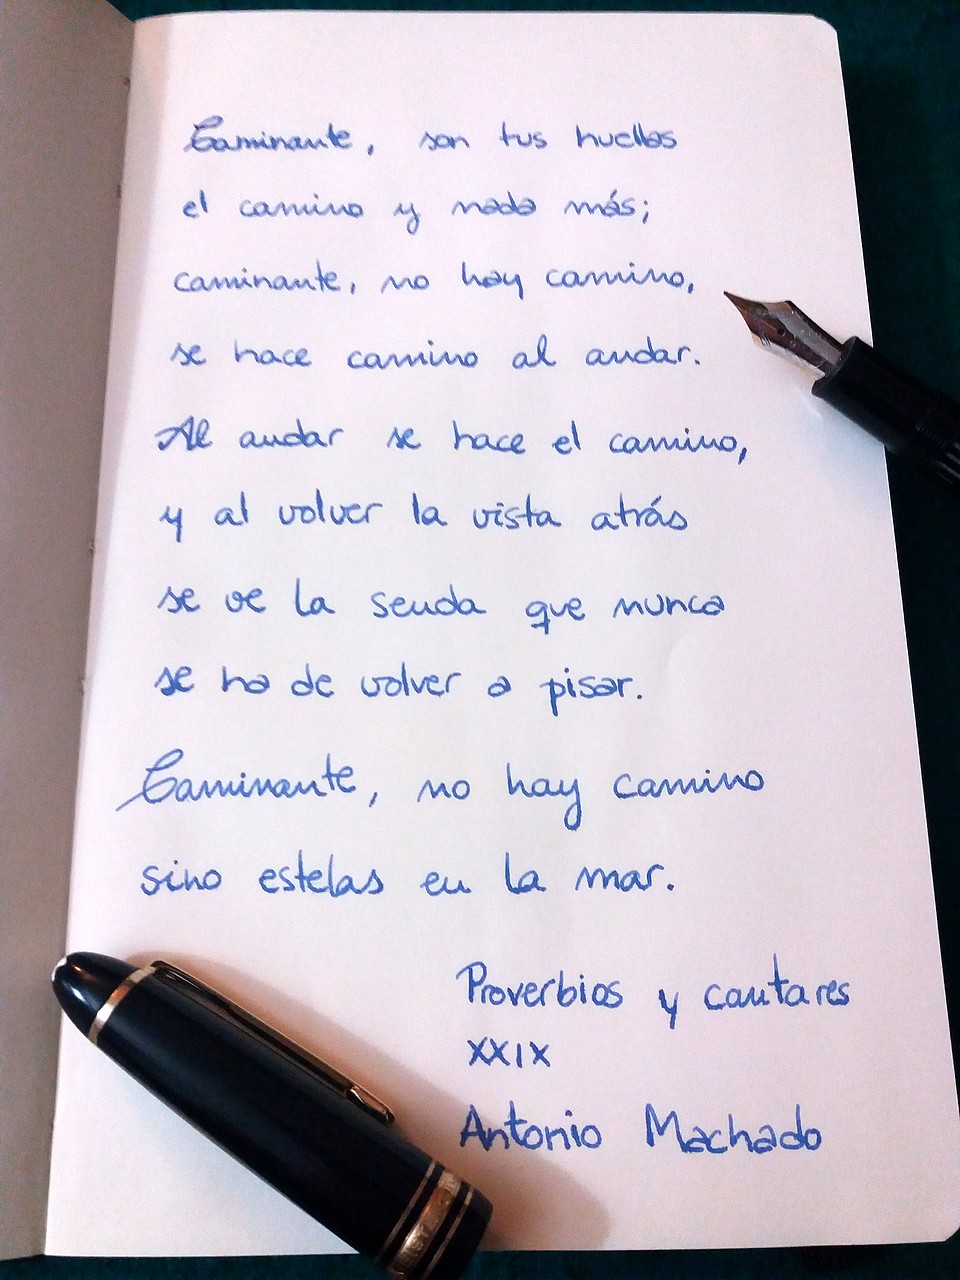 Caminante, son tus huellas
el camino y nada más;
caminante, no hay camino,
se hace camino al andar.
Al andar se hace el camino,
y al volver la vista atrás
se ve la senda que nunca
se ha de volver a pisar.
Caminante, no hay camino
sino estelas en la mar.
Proverbios y cantares
XXIX
Antonio Machado